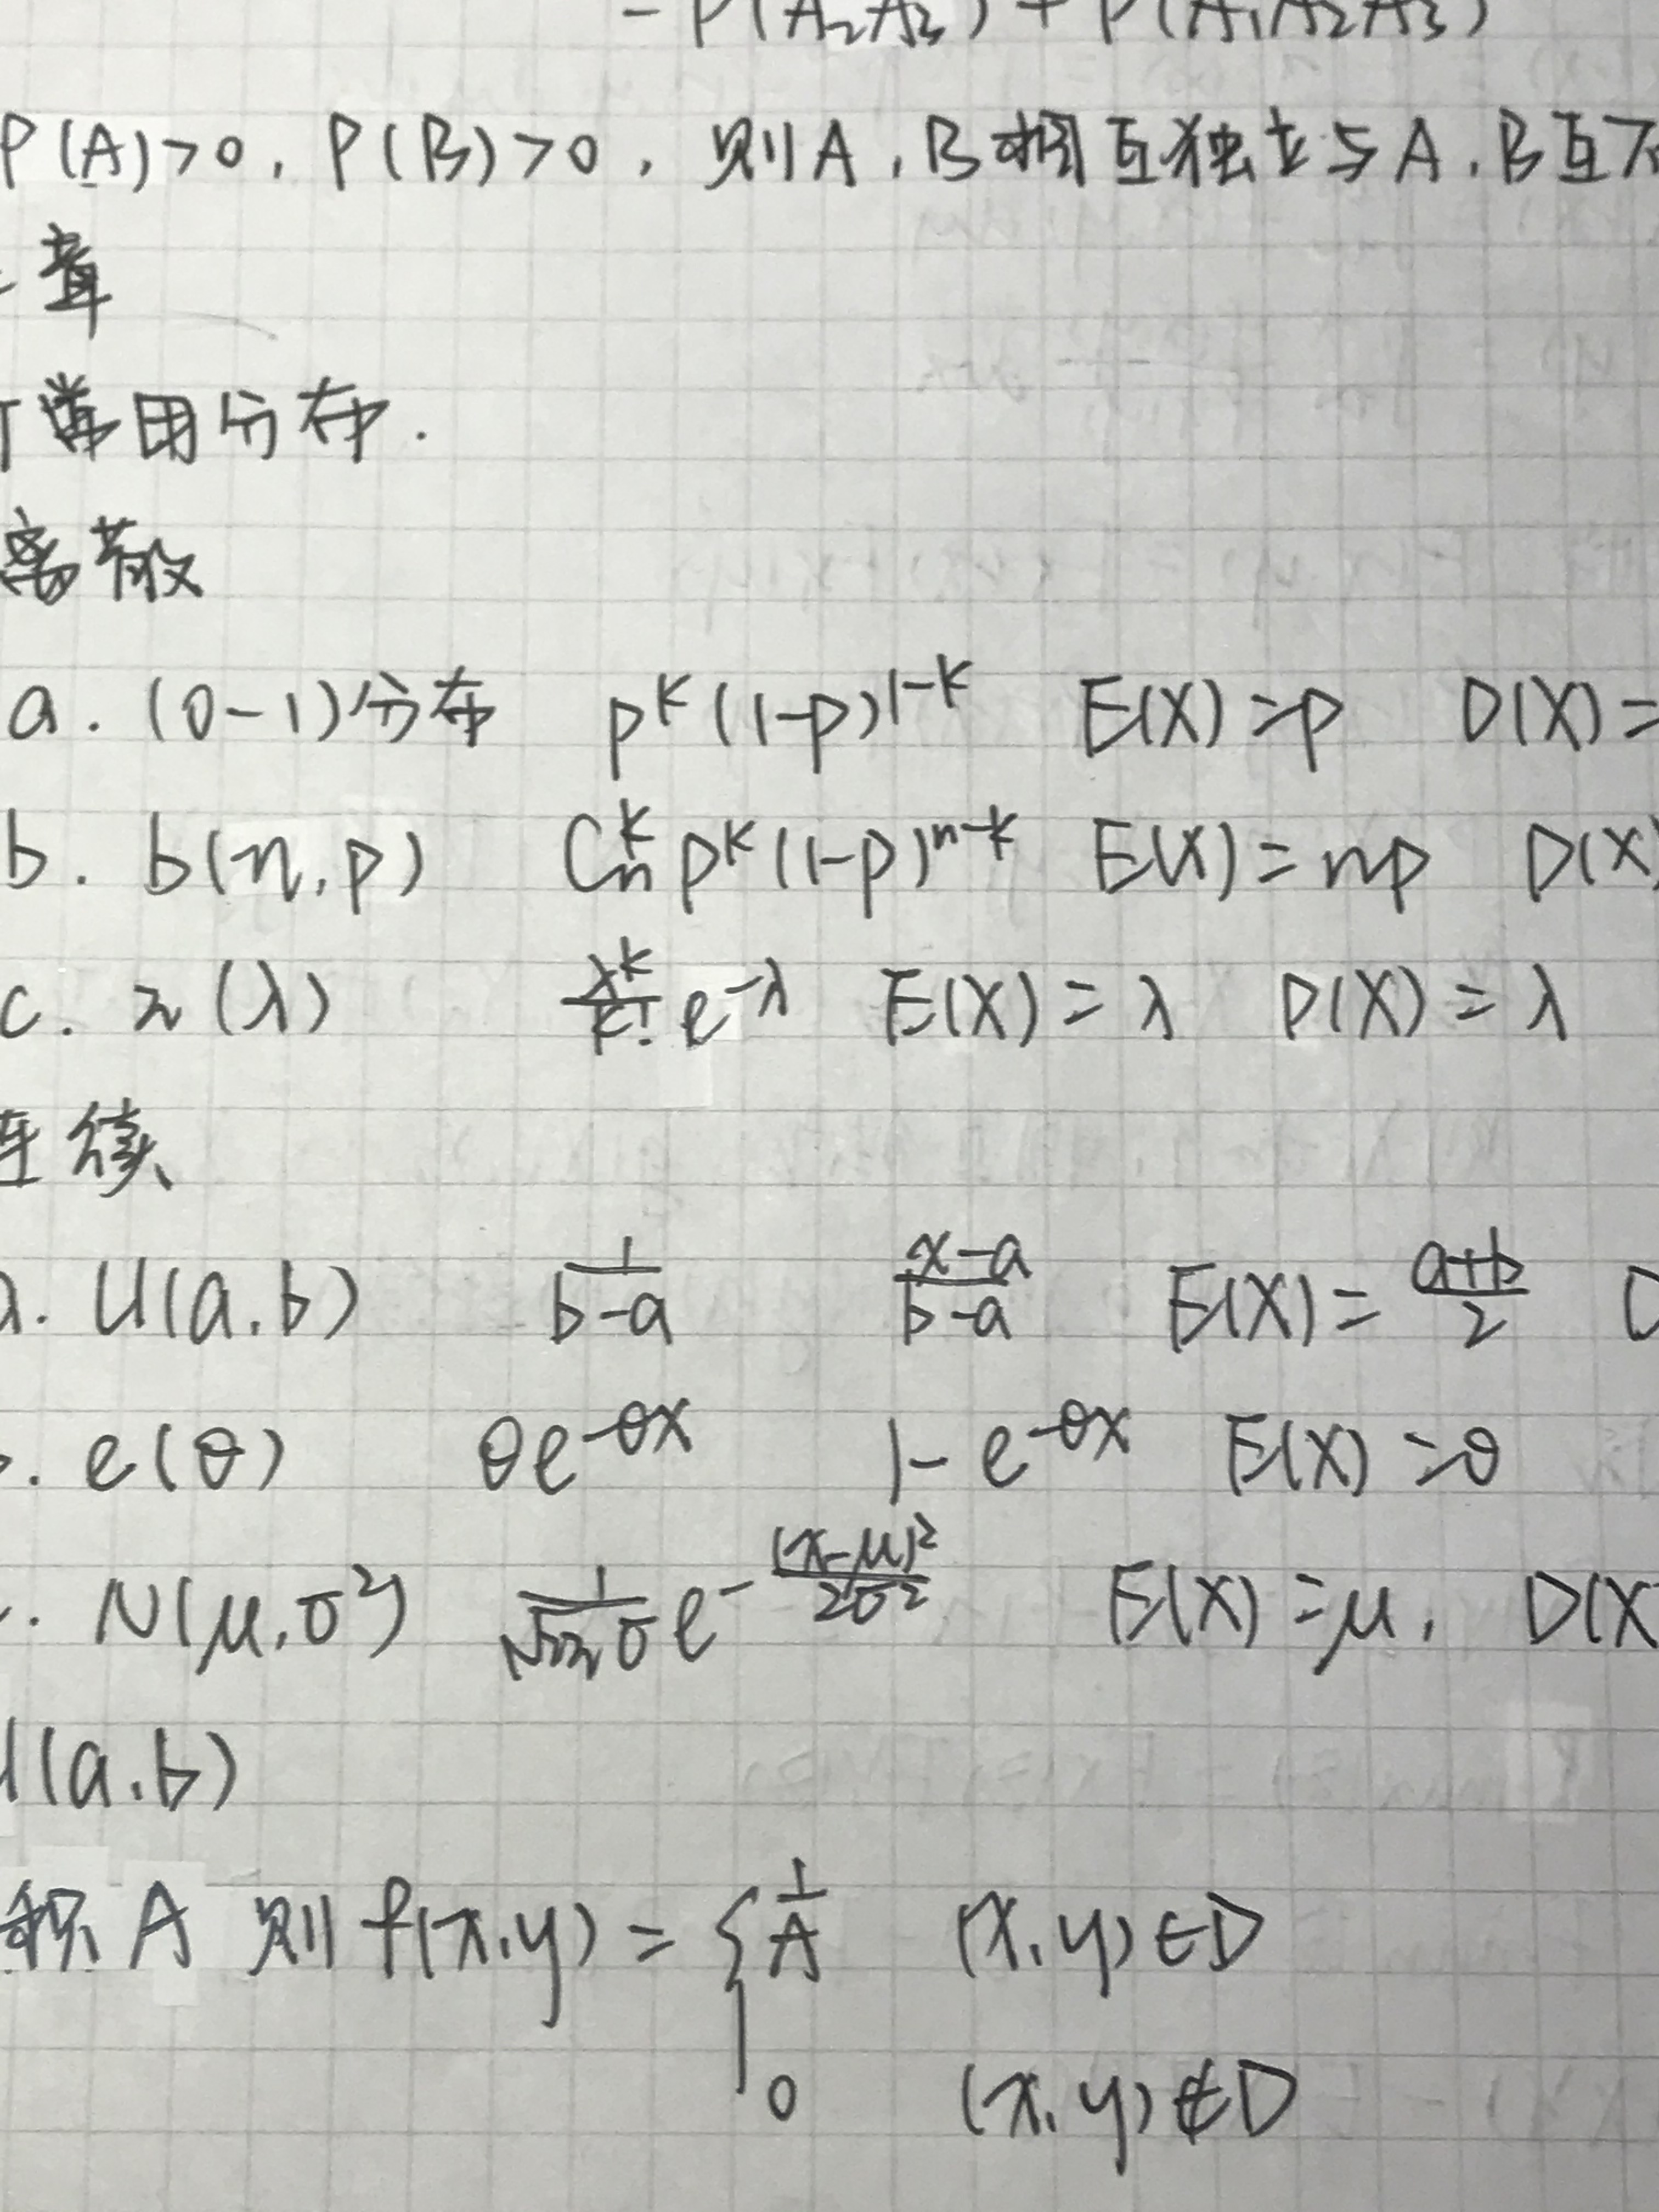 - P(A₂A₃) + P(A₁A₂A₃)
P(A)>0, P(B)>0, 则A,B相互独立与A,B互不
章
常用分布.
离散
a. (0-1)分布 p^k(1-p)^{1-k} E(X)=p D(X)=
b. b(n,p) C_n^k p^k(1-p)^{n-k} E(X)=np D(X)
c. π(λ) \frac{λ^k}{k!}e^{-λ} E(X)=λ D(X)=λ
连续
a. U(a,b) \frac{1}{b-a} \frac{x-a}{b-a} E(X)=\frac{a+b}{2} D
. e(θ) θe^{-θx} 1-e^{-θx} E(X)=θ
. N(μ,σ²) \frac{1}{\sqrt{2π}σ}e^{-\frac{(x-μ)^2}{2σ^2}} E(X)=μ, D(X
U(a,b)
积A 则f(x,y)={\frac{1}{A} (x,y)∈D
0 (x,y)∉D